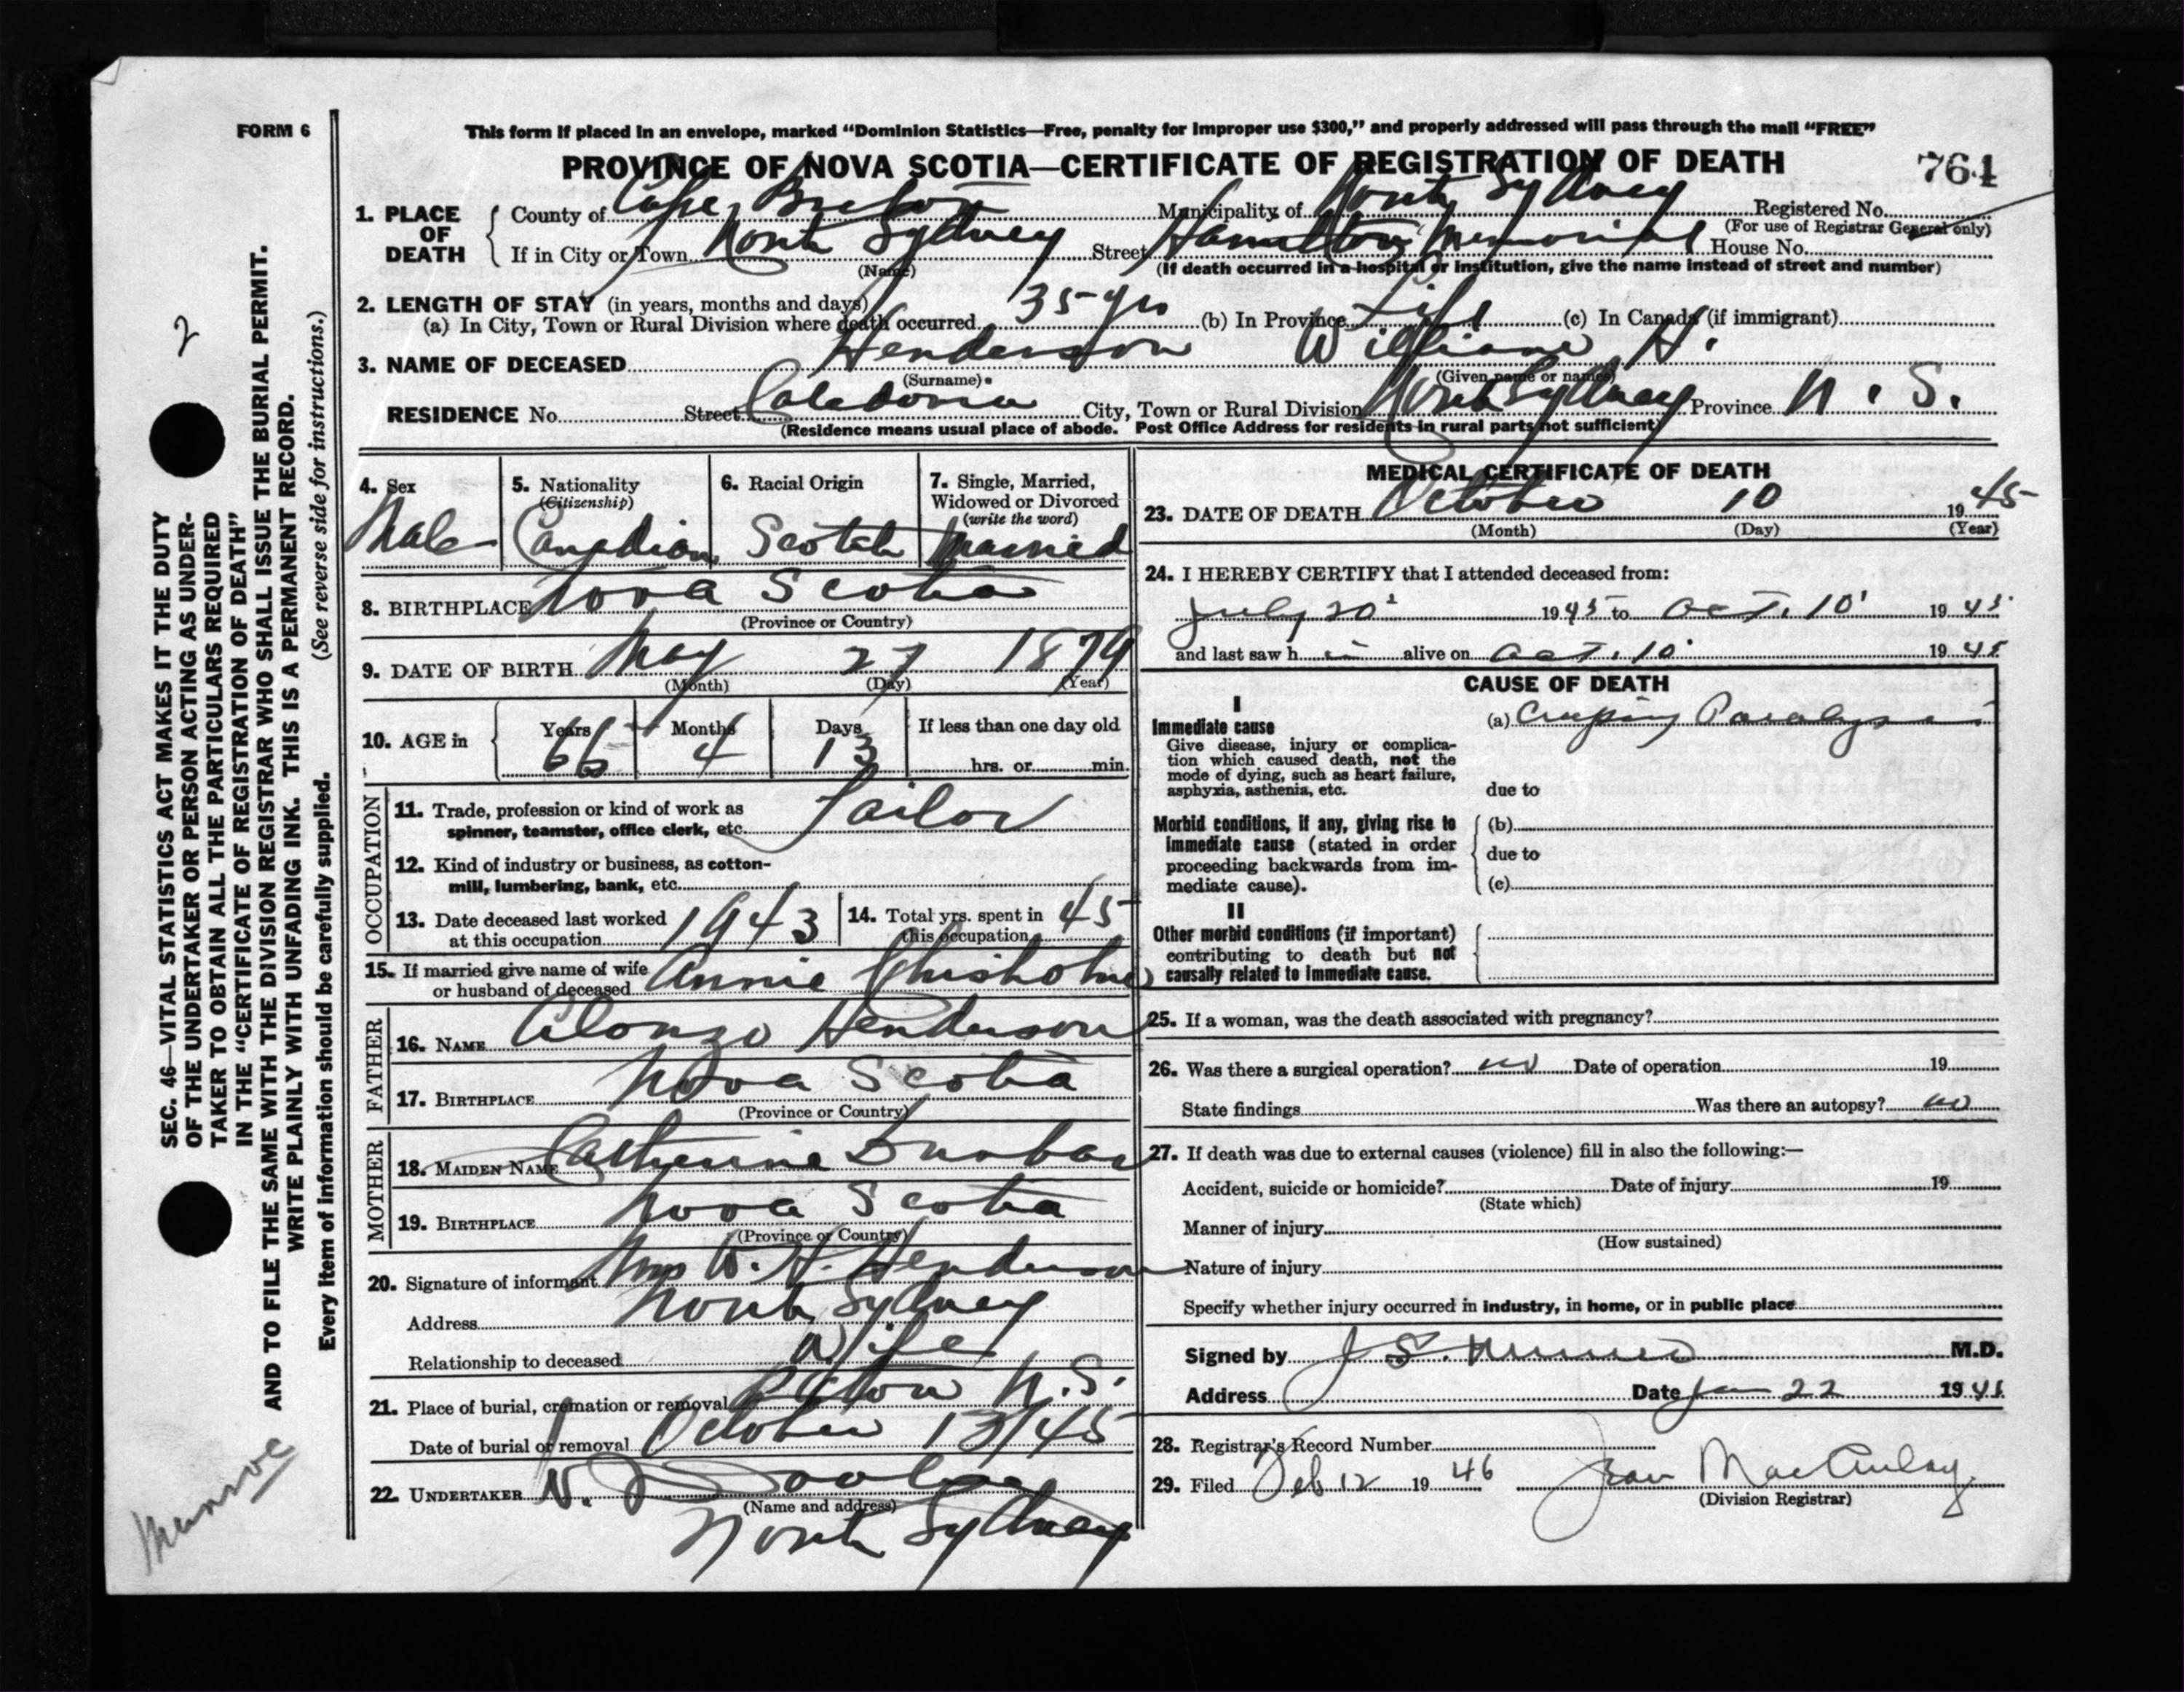 FORM 6
This form if placed in an envelope, marked “Dominion Statistics—Free, penalty for improper use $300,” and properly addressed will pass through the mail “FREE”
PROVINCE OF NOVA SCOTIA—CERTIFICATE OF REGISTRATION OF DEATH
764
1. PLACE OF DEATH
County of Cape Breton Municipality of North Sydney Registered No.
(For use of Registrar General only)
If in City or Town North Sydney Street Hamilton Memorial House No.
(Name) (If death occurred in a hospital or institution, give the name instead of street and number)
2. LENGTH OF STAY (in years, months and days)
(a) In City, Town or Rural Division where death occurred 35 yrs (b) In Province Life (c) In Canada (if immigrant)
3. NAME OF DECEASED Henderson William H.
(Surname) (Given name or names)
RESIDENCE No. Street Caledonia City, Town or Rural Division North Sydney Province N. S.
(Residence means usual place of abode. Post Office Address for residents in rural parts not sufficient)
4. Sex Male
5. Nationality (Citizenship) Canadian
6. Racial Origin Scotch
7. Single, Married, Widowed or Divorced (write the word) Married
8. BIRTHPLACE Nova Scotia
(Province or Country)
9. DATE OF BIRTH May 27 1879
(Month) (Day) (Year)
10. AGE in Years 66 Months 4 Days 13 If less than one day old
hrs. or min.
OCCUPATION
11. Trade, profession or kind of work as
spinner, teamster, office clerk, etc. Tailor
12. Kind of industry or business, as cotton-
mill, lumbering, bank, etc.
13. Date deceased last worked
at this occupation 1943
14. Total yrs. spent in
this occupation 45
15. If married give name of wife
or husband of deceased Annie Chisholm
FATHER
16. NAME Alonzo Henderson
17. BIRTHPLACE Nova Scotia
(Province or Country)
MOTHER
18. MAIDEN NAME Catherine Dunbar
19. BIRTHPLACE Nova Scotia
(Province or Country)
20. Signature of informant Mrs W. H. Henderson
Address North Sydney
Relationship to deceased Wife
21. Place of burial, cremation or removal Pictou N.S.
Date of burial or removal October 13/45
22. UNDERTAKER N. J.
(Name and address)
North Sydney
MEDICAL CERTIFICATE OF DEATH
23. DATE OF DEATH October 10 1945
(Month) (Day) (Year)
24. I HEREBY CERTIFY that I attended deceased from:
July 20 1945 to Oct. 10 1945
and last saw h im alive on Oct. 10 1945
CAUSE OF DEATH
I
Immediate cause
Give disease, injury or complica-
tion which caused death, not the
mode of dying, such as heart failure,
asphyxia, asthenia, etc.
(a) Creeping Paralysis
due to
Morbid conditions, if any, giving rise to
immediate cause (stated in order
proceeding backwards from im-
mediate cause).
(b)
due to
(c)
II
Other morbid conditions (if important)
contributing to death but not
causally related to immediate cause.
25. If a woman, was the death associated with pregnancy?
26. Was there a surgical operation? no Date of operation 19
State findings Was there an autopsy? no
27. If death was due to external causes (violence) fill in also the following:—
Accident, suicide or homicide? Date of injury 19
(State which)
Manner of injury
(How sustained)
Nature of injury
Specify whether injury occurred in industry, in home, or in public place
Signed by J. S. Munro M.D.
Address Date Jan 22 194
28. Registrar's Record Number
29. Filed Feb 12 19 46 Jean MacAulay
(Division Registrar)
SEC. 46—VITAL STATISTICS ACT MAKES IT THE DUTY
OF THE UNDERTAKER OR PERSON ACTING AS UNDER-
TAKER TO OBTAIN ALL THE PARTICULARS REQUIRED
IN THE “CERTIFICATE OF REGISTRATION OF DEATH”
AND TO FILE THE SAME WITH THE DIVISION REGISTRAR WHO SHALL ISSUE THE BURIAL PERMIT.
WRITE PLAINLY WITH UNFADING INK. THIS IS A PERMANENT RECORD.
Every item of information should be carefully supplied. (See reverse side for instructions.)
2
Munroe